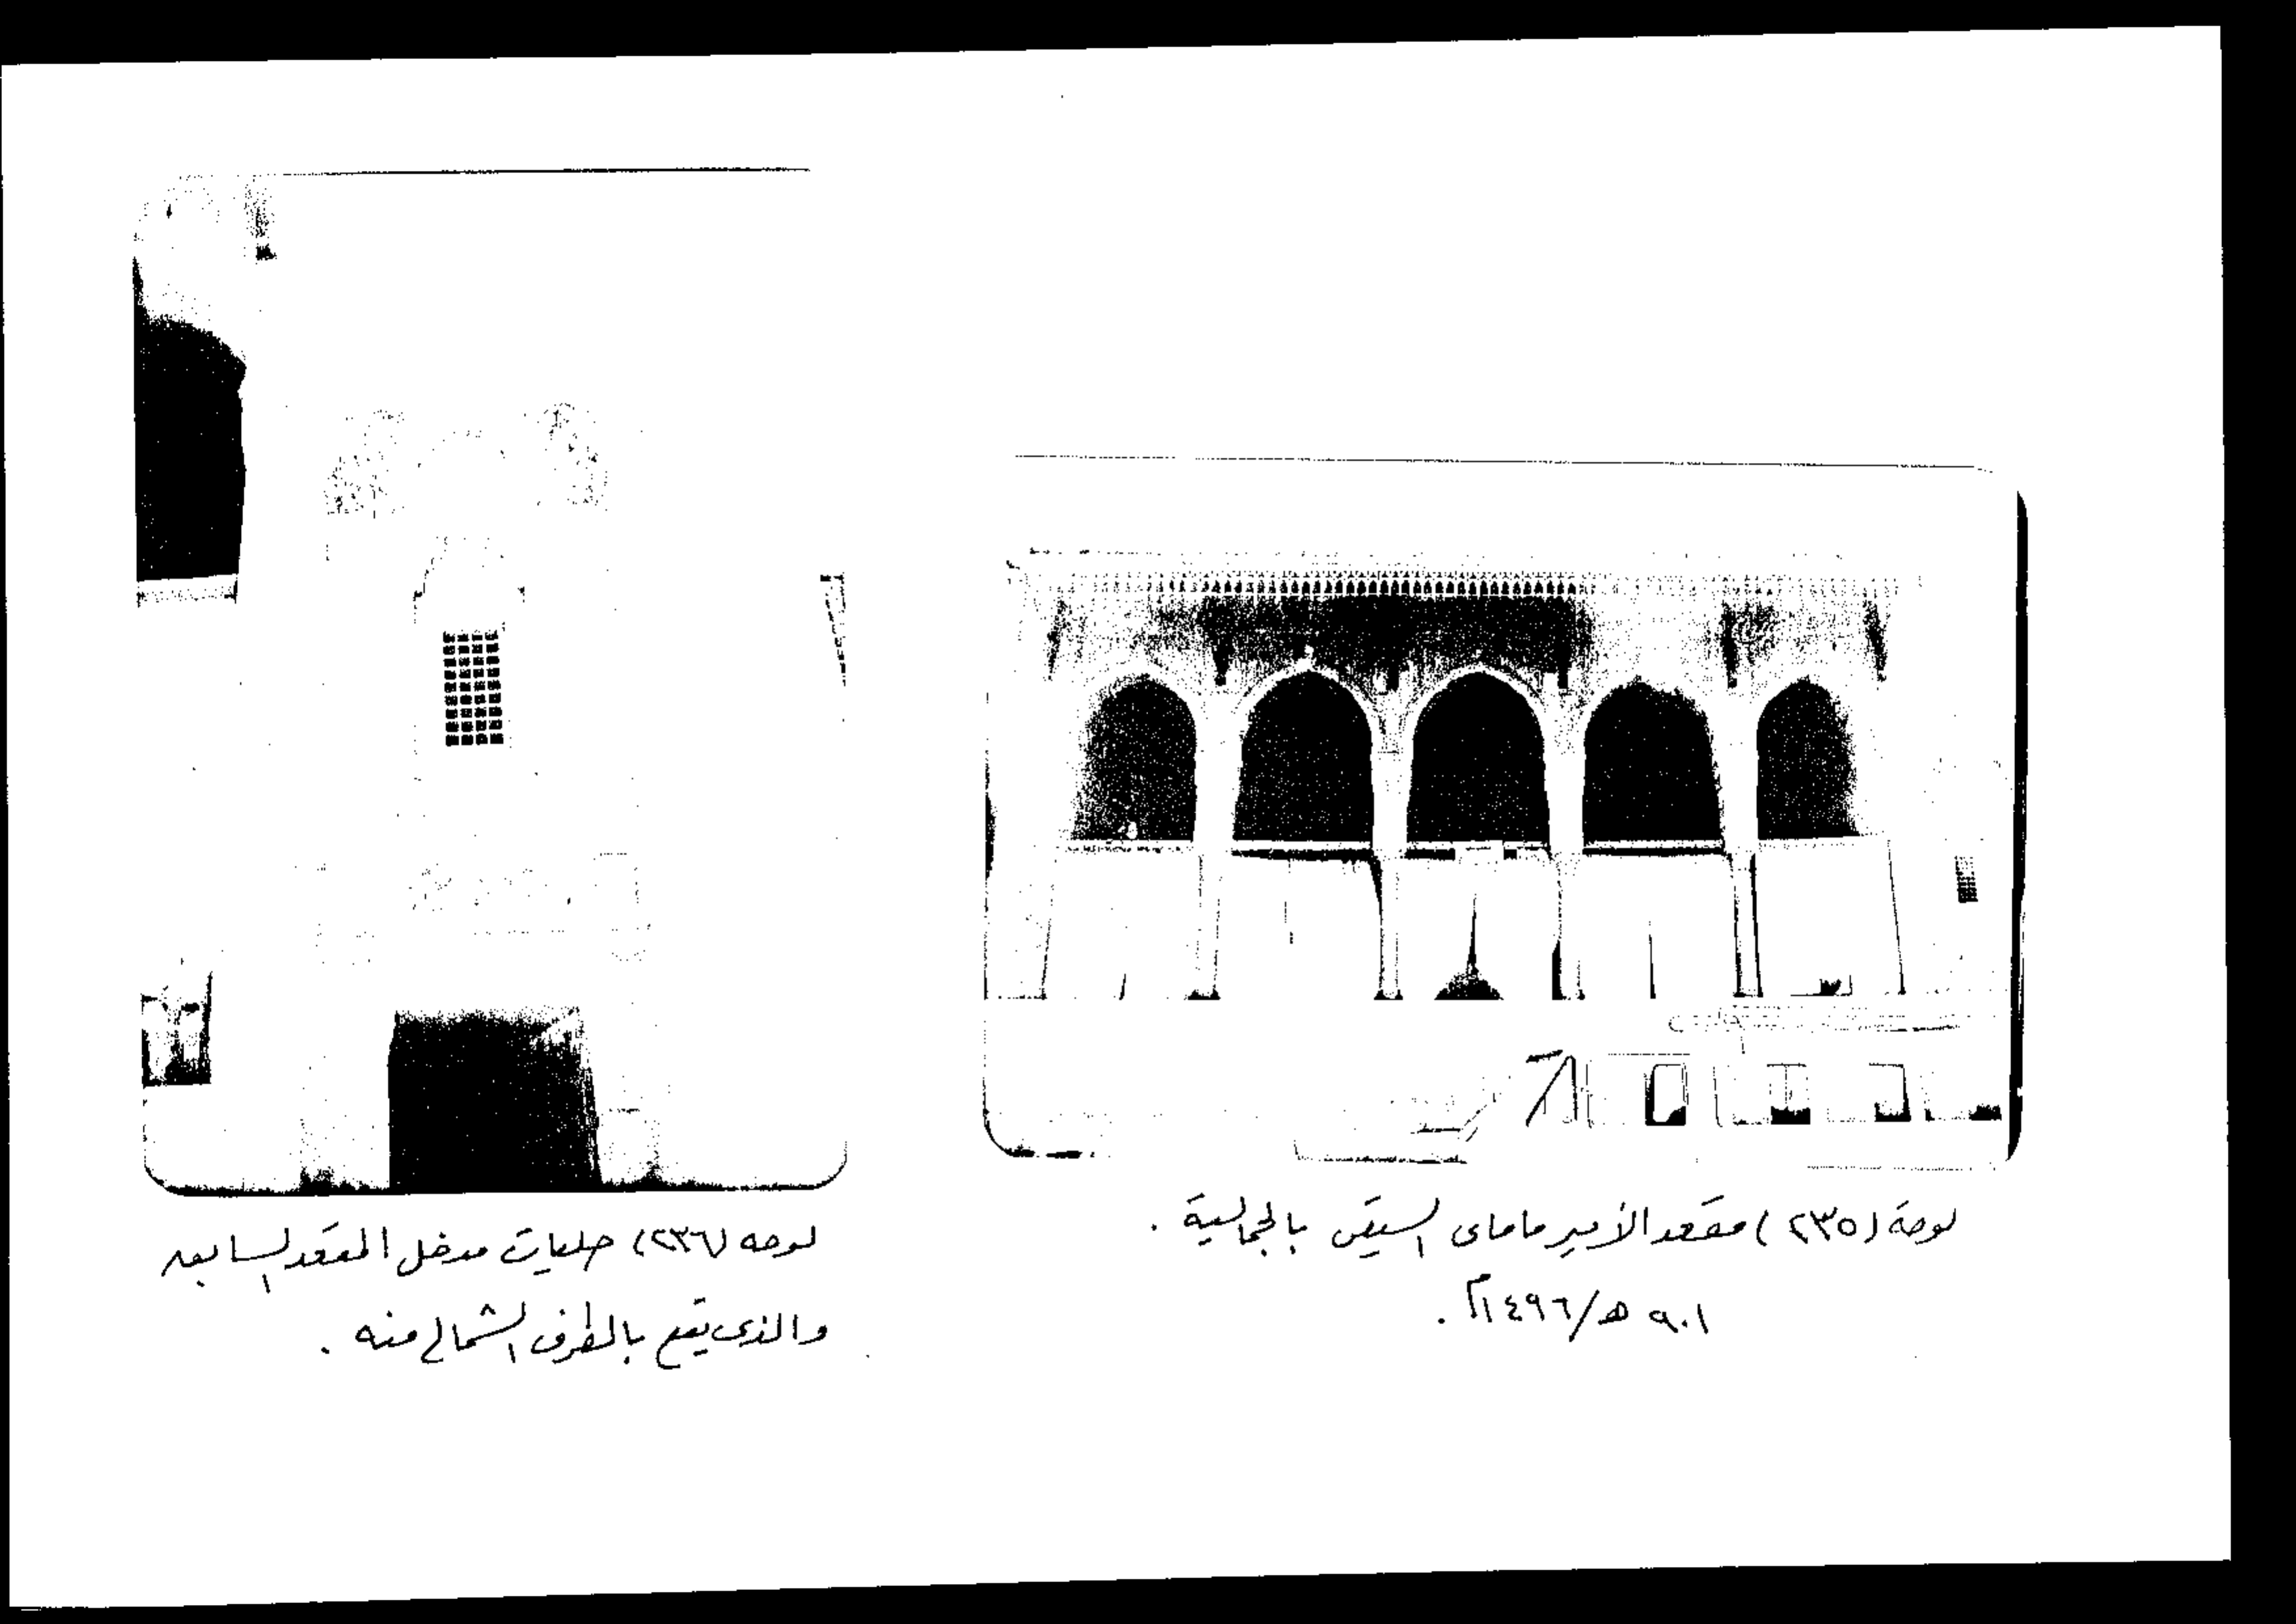 لوحة (٢٣٥) مقعد الأمير ماماى السيفى بالجمالية .
٩٠١ هـ/١٤٩٦م .
لوحه (٢٣٦) حليات مدخل المقعد السابق
والذى يقع بالطرف الشمالى منه .